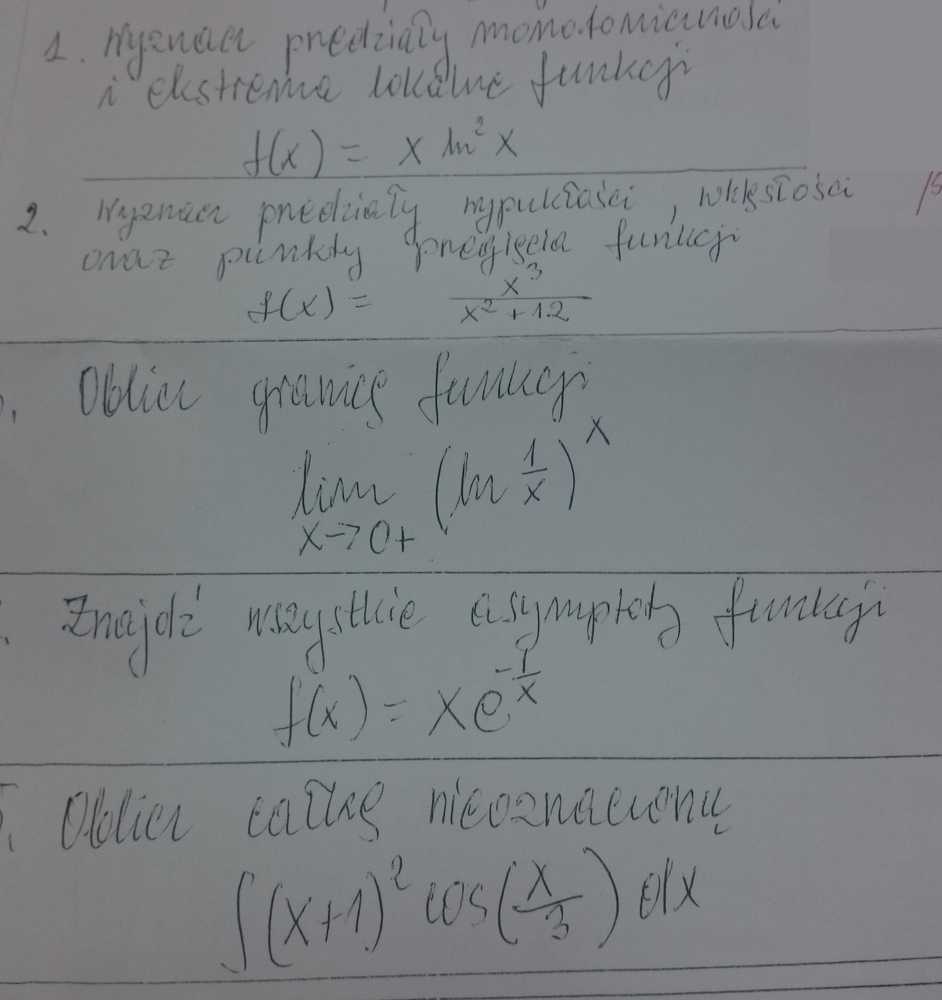 1. Wyznacz przedziały monotoniczności
i ekstrema lokalne funkcji
f(x) = x ln² x
2. Wyznacz przedziały wypukłości, wklęsłości
oraz punkty przegięcia funkcji
f(x) = x³ / (x² + 12)
Oblicz granicę funkcji
lim x→0+ (ln 1/x)^x
Znajdź wszystkie asymptoty funkcji
f(x) = xe^(-1/x)
5. Oblicz całkę nieoznaczoną
∫(x+1)² cos(x/3) dx